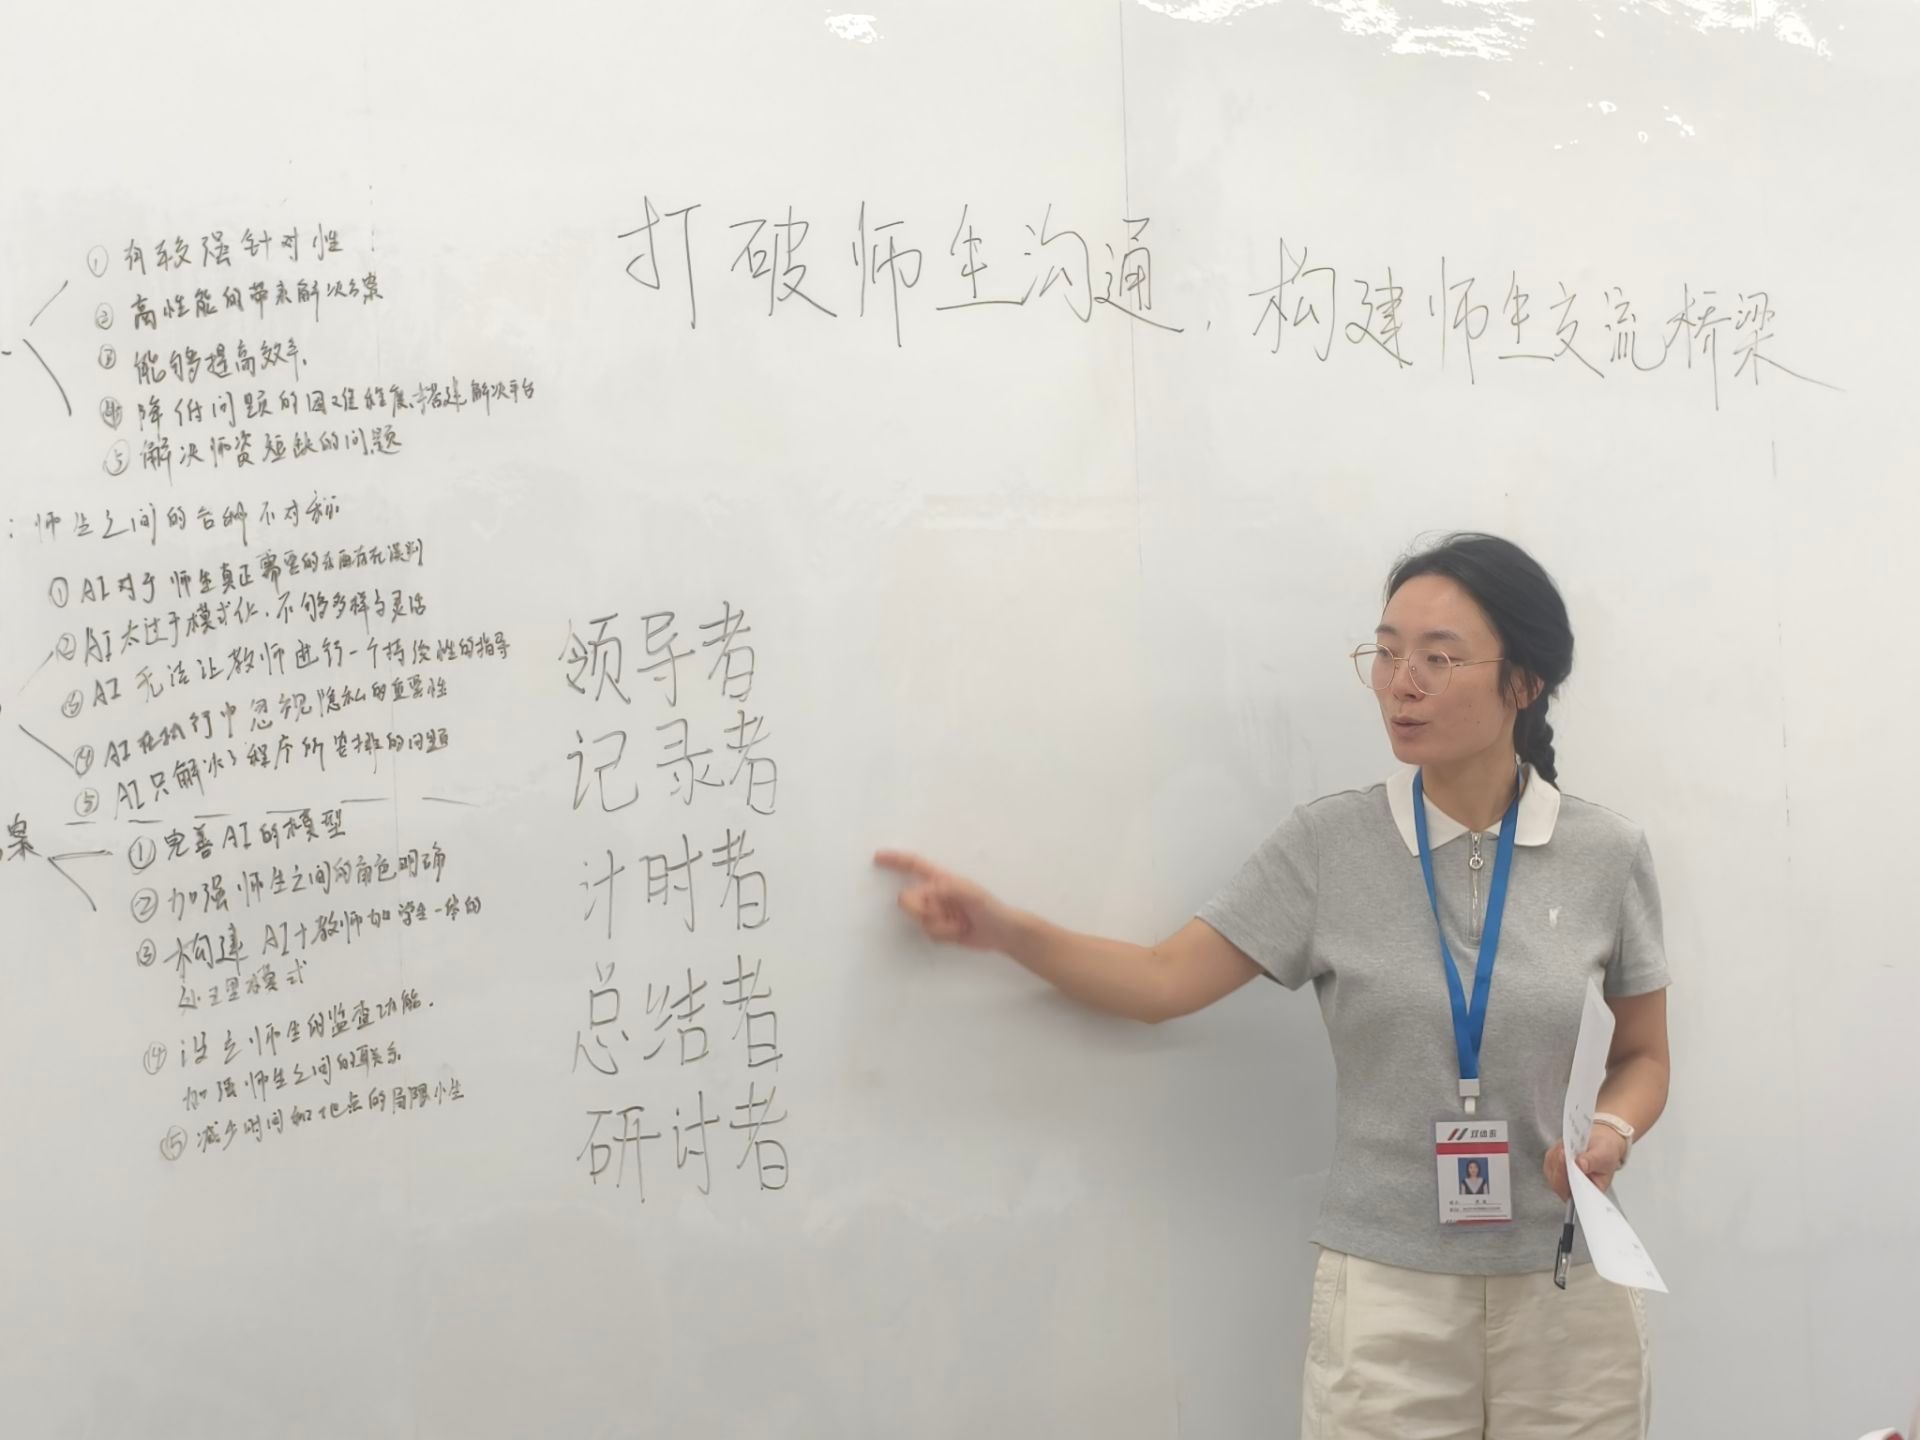 打破师生沟通,构建师生交流桥梁
① 有较强针对性
② 高性能的带来解决方案
③ 能够提高效率.
④ 降低问题的困难程度,搭建解决平台
⑤ 解决师资短缺的问题
: 师生之间的 不对称
① AI对于师生真正需要的东西存在误判
② AI太过于模式化.不够多样与灵活
③ AI 无法让教师进行一个持续性的指导
④ AI在执行中忽视隐私的重要性
⑤ AI只解决了程序所安排的问题
案
① 完善AI的模型
② 加强师生之间的角色明确
③ 构建 AI+教师加学生一体的
处理模式
④ 设立师生的监查功能.
加强师生之间的联系
⑤ 减少时间和地点的局限性
领导者
记录者
计时者
总结者
研讨者